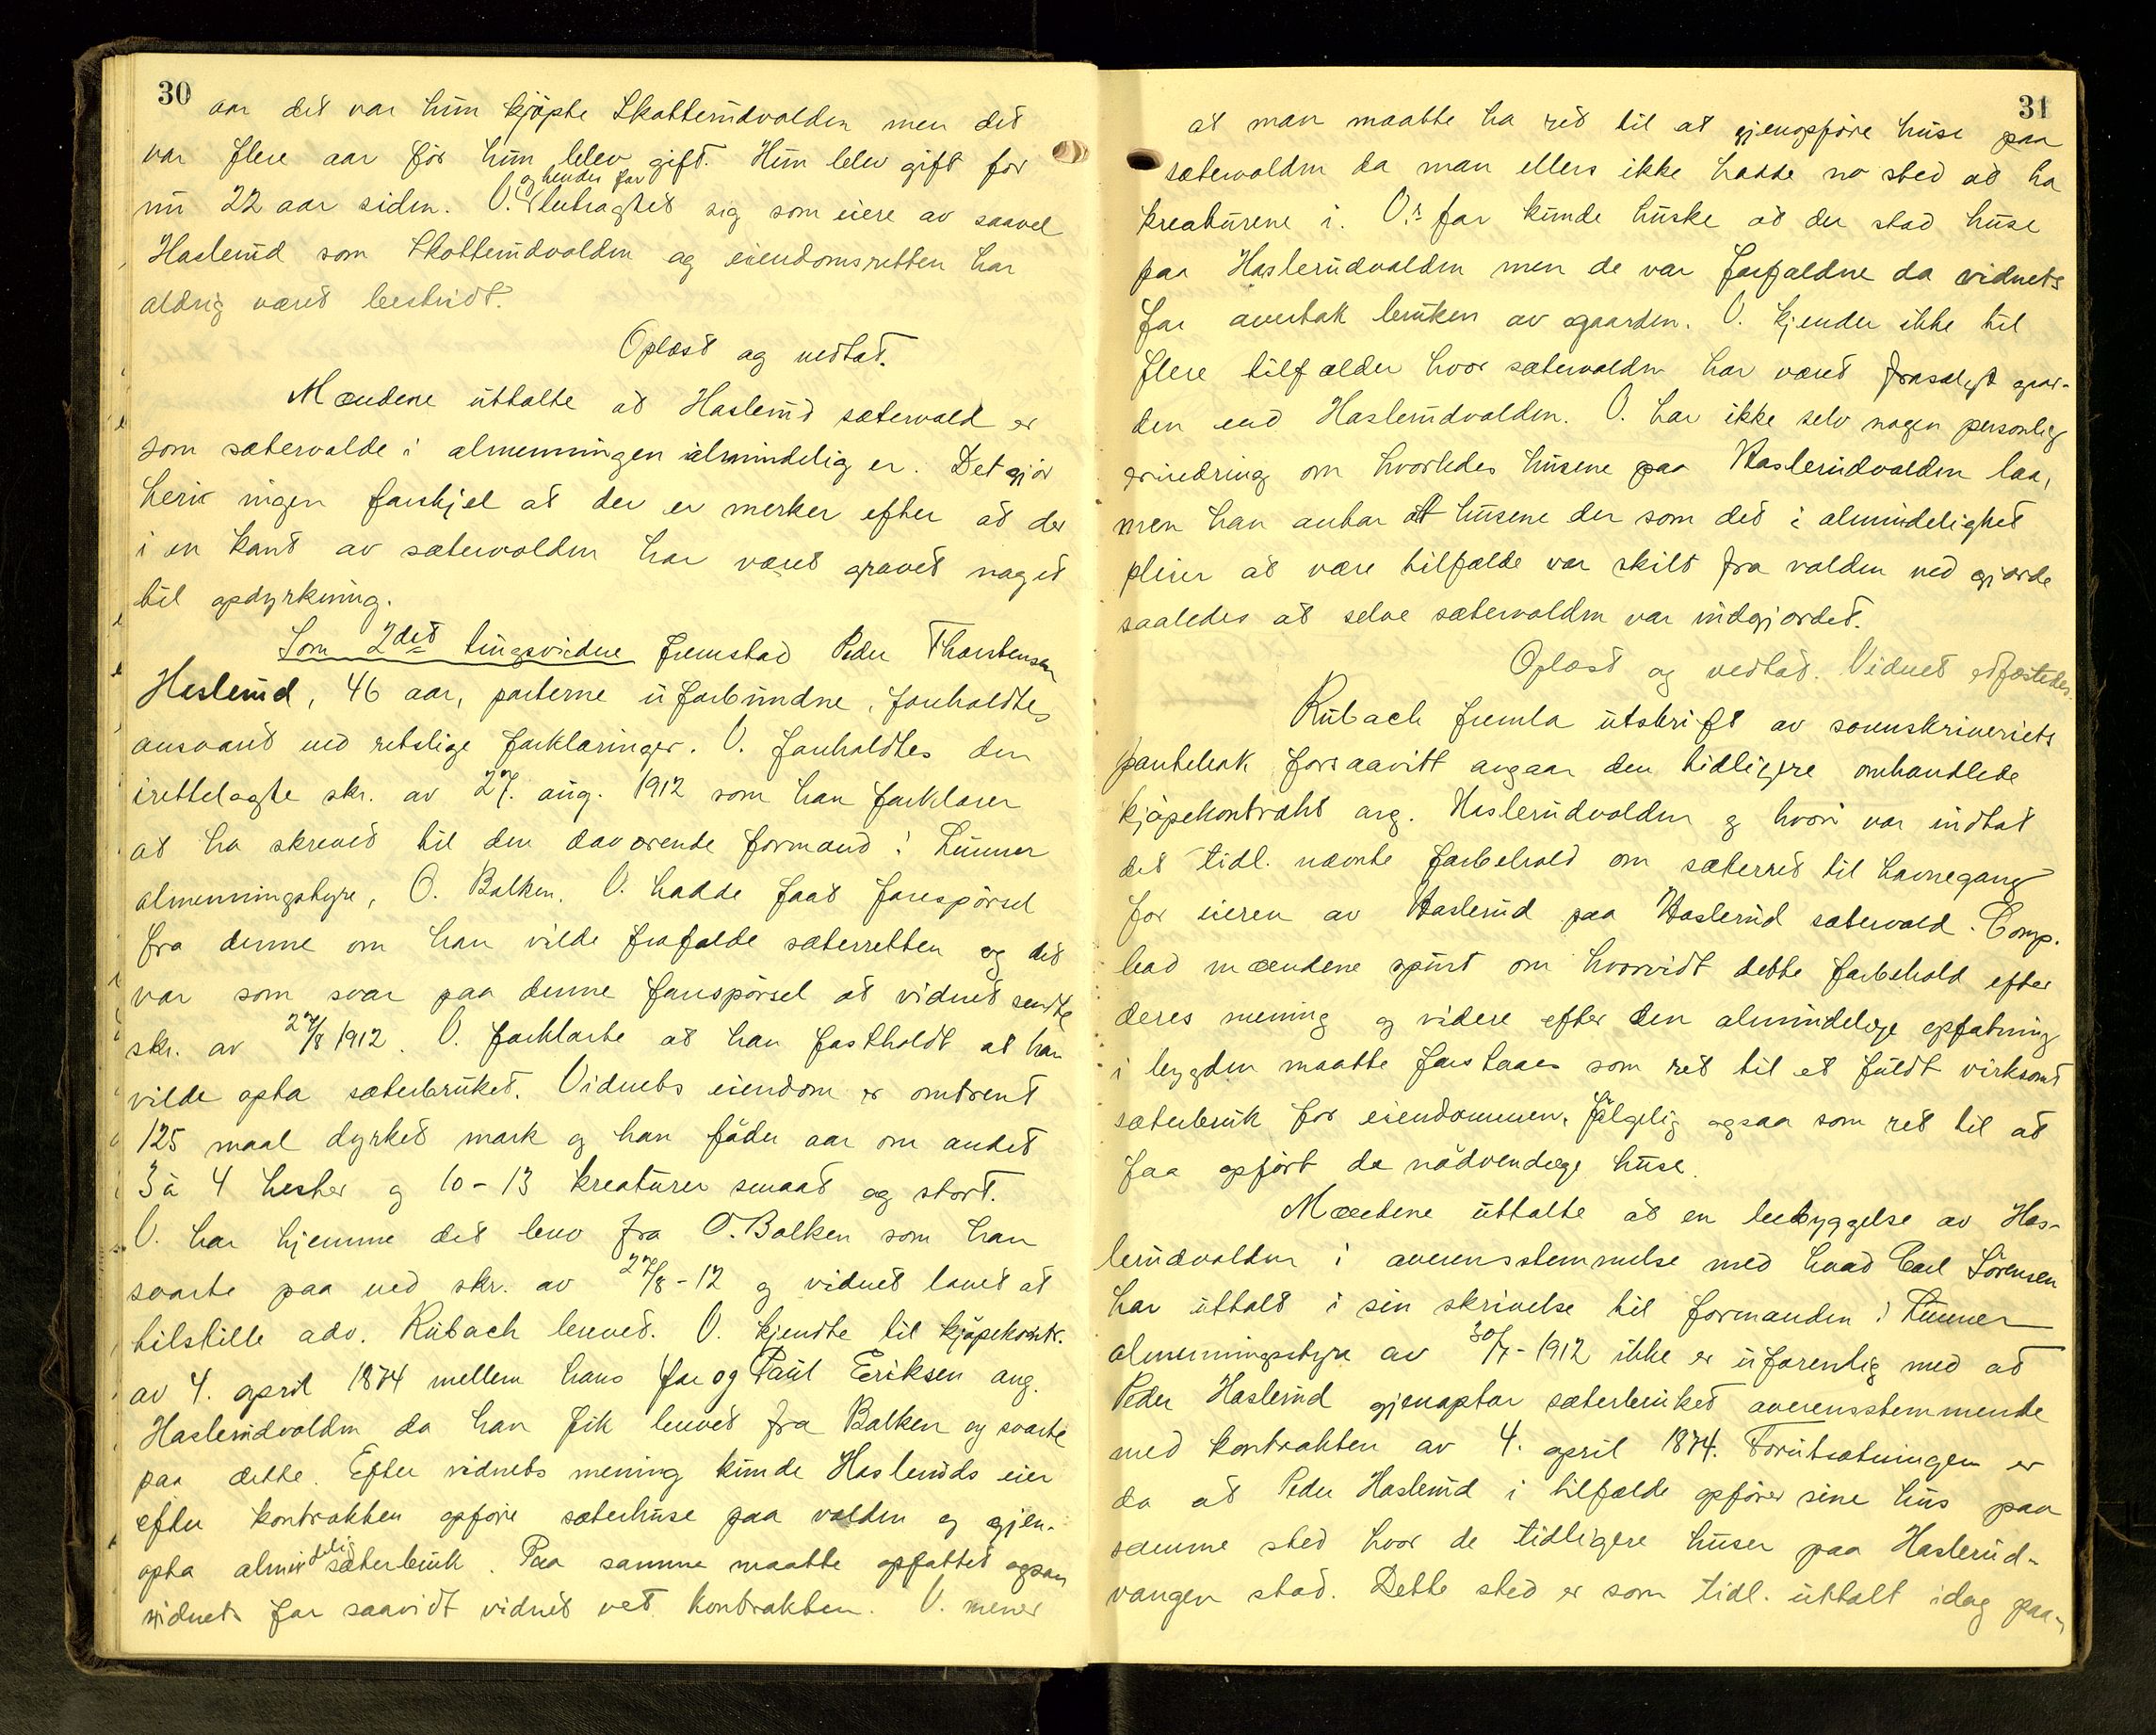 30
aar det var hun kjøpte Skotterudvolden men det
var flere aar før hun blev gift. Hun blev gift for
og hendes far
nu 22 aar siden. V. betragtet sig som eiere av saavel
Haslerud som Skotterudvolden og eiendomsretten har
aldrig været bestridt.
Oplæst og vedtat.
Mændene uttalte at Haslerud sætervold er
som sætervolde i almenningen almindelig er. Det gjør
heri ingen forskjel at der er merker efter at der
i en kant av sætervolden har været gravet noget
til opdyrkning.
Som 2det tingsvidne fremstod Peder Thorstensen
Haslerud, 46 aar, parterne uforbundne, forholdtes
ansvaret ved retslige forklaringer. V. forholdtes den
irettelagte skr. av 27. aug. 1912 som han forklarer
at ha skrevet til den daværende formand i Lunner
almenningstyre, O. Balken. V. hadde faat forespørsel
fra denne om han vilde frafalde sæterretten og det
var som svar paa denne forespørsel at vidnet sendte
skr. av 27/8 1912. V. forklarte at han fastholdt at han
vilde opta sæterbruket. Vidnets eiendom er omtrent
125 maal dyrket mark og han føder aar om andet
3 à 4 hester og 10-13 kreaturer smaat og stort.
V. har hjemme det brev fra O. Balken som han
svarte paa ved skr. av 27/8-12 og vidnet lovet at
tilstille adv. Rubach brevet. V. kjendte til kjøpekontr.
av 4. april 1874 mellem hans far og Paul Eriksen ang.
Haslerudvolden da han fik brevet fra Balken og svarte
paa dette. Efter vidnets mening kunde Hasleruds eier
efter kontrakten opføre sæterhuse paa volden og gjen-
opta almindelig sæterbruk. Paa samme maatte opfattet ogsaa
vidnets far saavidt vidnet vet kontrakten. V. mener
31
at man maatte ha ret til at gjenopføre huse paa
sætervolden da man ellers ikke hadde no sted at ha
kreaturene i. V.s far kunde huske at der stod huse
paa Haslerudvolden men de var forfaldne da vidnets
far overtok bruken av gaarden. V. kjender ikke til
flere tilfælder hvor sætervolden har været frasolgt gaar-
den end Haslerudvolden. V. har ikke selv nogen personlig
erindring om hvorledes husene paa Haslerudvolden laa,
men han antar at husene der som det i almindelighet
pleier at være tilfælde var skilt fra volden ved gjærde
saaledes at selve sætervolden var indgjærdet.
Oplæst og vedtat. Vidnet edfæstedes.
Rubach fremla utskrift av sorenskriveriets
pantebok forsaavitt angaar den tidligere omhandlede
kjøpekontrakt ang. Haslerudvolden og hvori var indtat
det tidl. nævnte forbehold om sæterret til havnegang
for eieren av Haslerud paa Haslerud sætervold. Comp.
bad mændene spurt om hvorvidt dette forbehold efter
deres mening og videre efter den almindelige opfatning
i bygden maatte forstaaes som ret til et fuldt virksomt
sæterbruk for eiendommen, følgelig ogsaa som ret til at
faa opført de nødvendige huse.
Mændene uttalte at en bebyggelse av Has-
lerudvolden i overensstemmelse med hvad Carl Sørensen
har uttalt i sin skrivelse til formanden i Lunner
almenningsstyre av 30/7-1912 ikke er uforenlig med at
Peder Haslerud gjenoptar sæterbruket overensstemmende
med kontrakten av 4. april 1874. Forutsætningen er
da at Peder Haslerud i tilfælde opfører sine hus paa
samme sted hvor de tidligere huser paa Haslerud-
vangen stod. Dette sted er som tidl. uttalt idag paa-